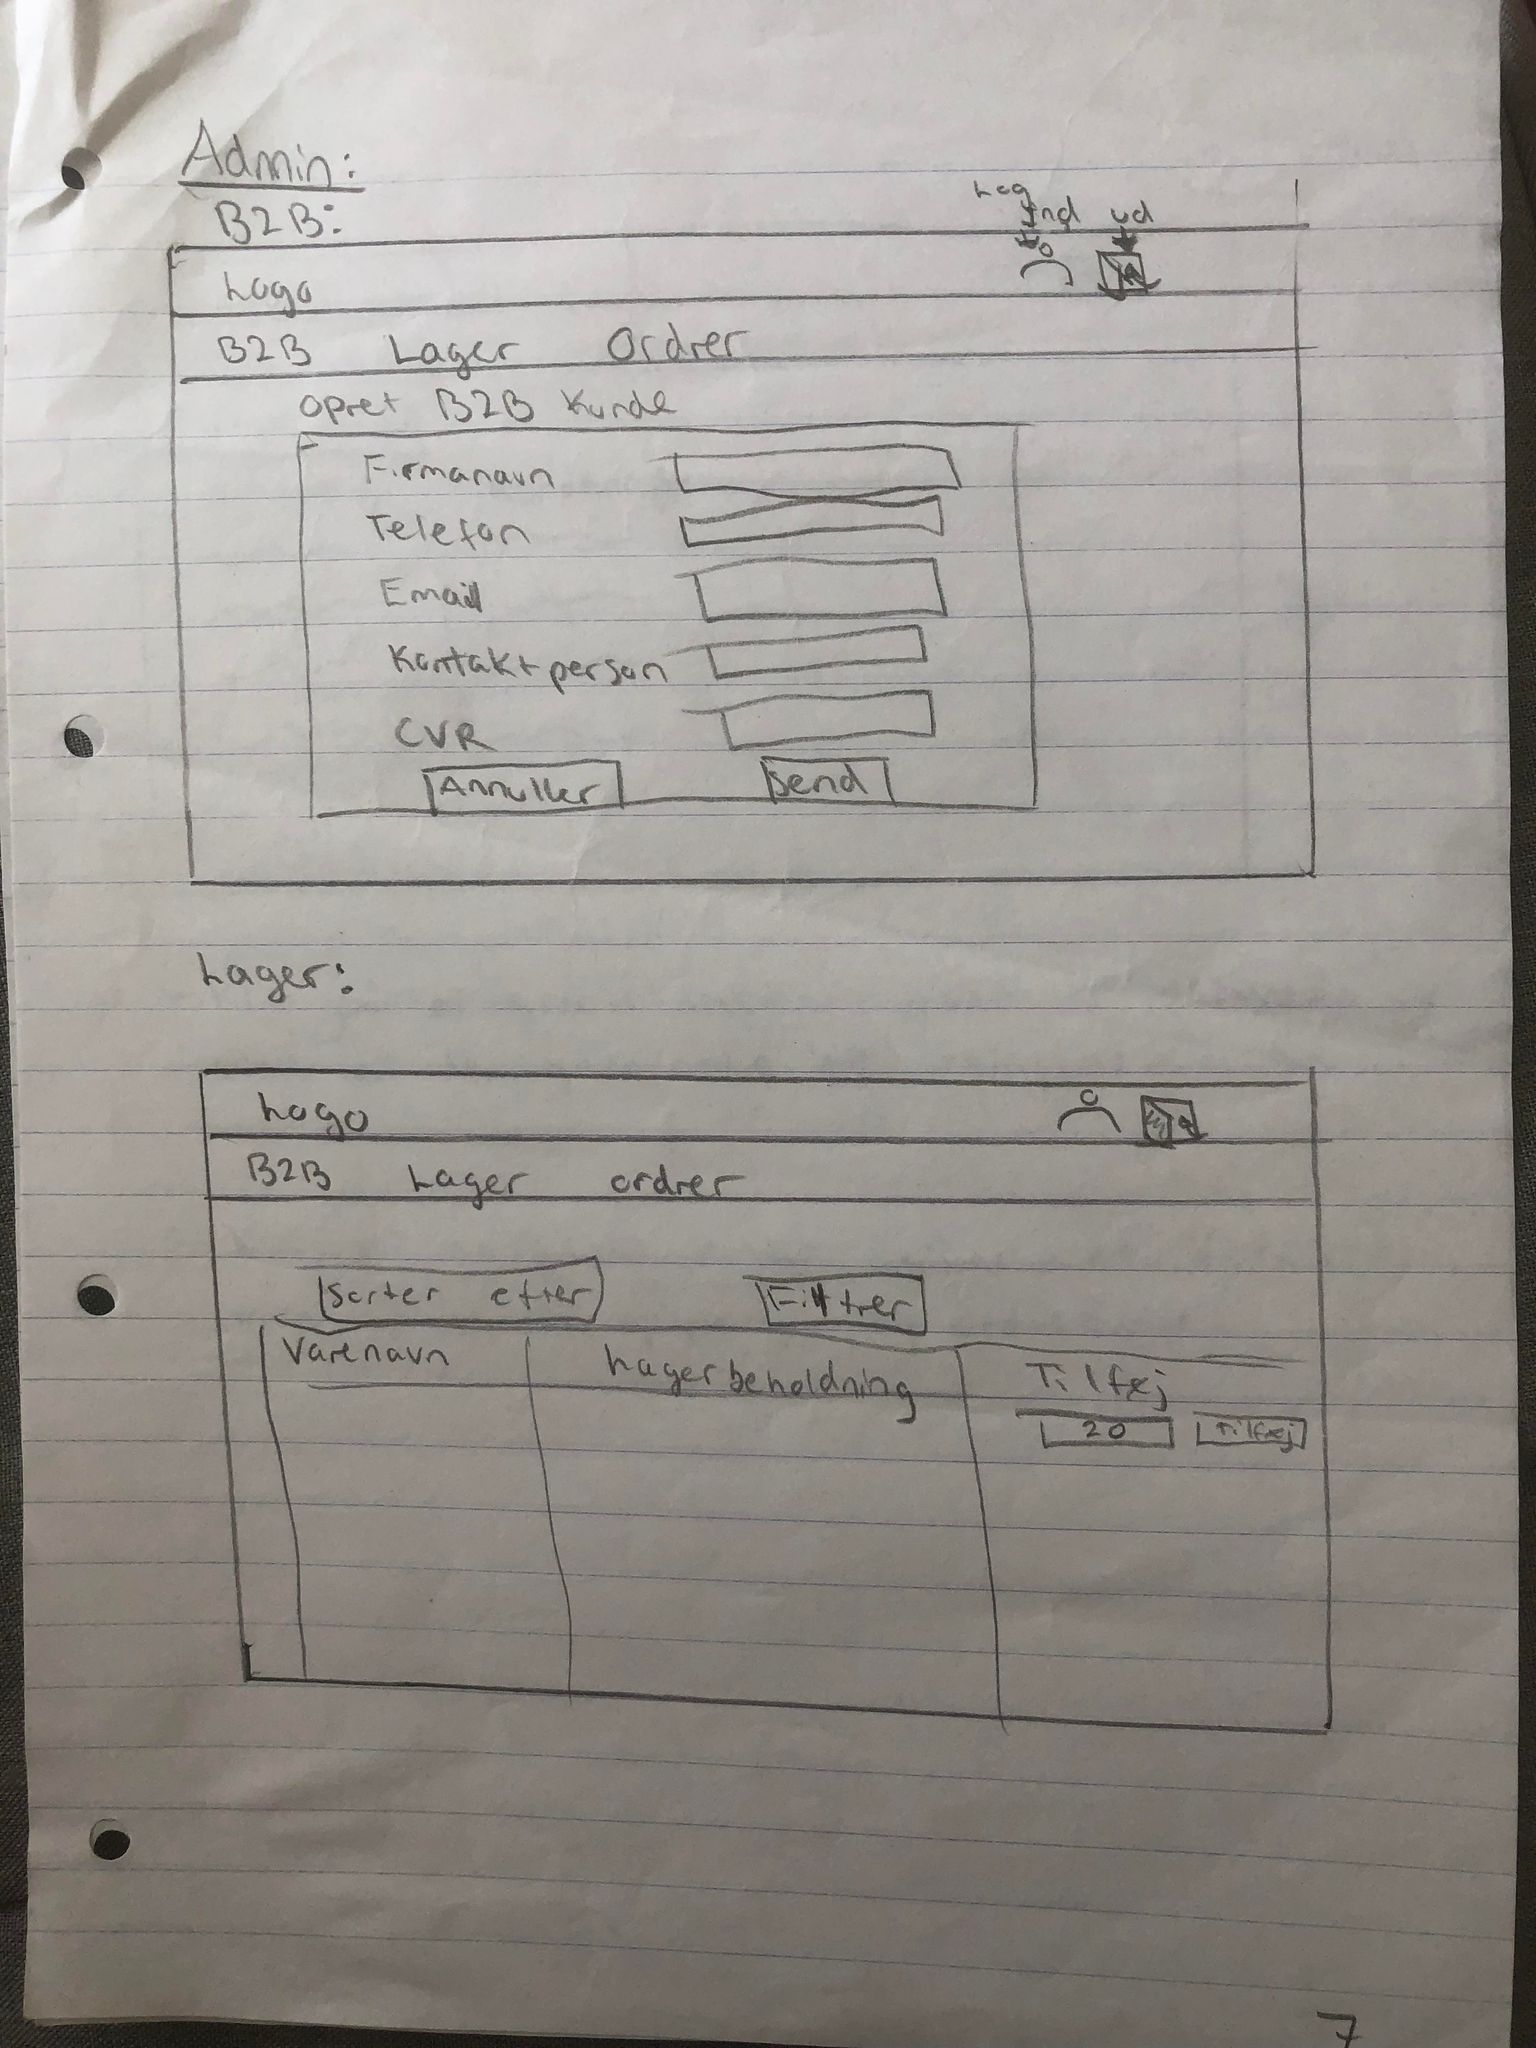 Admin:
B2B:
Log
ind ud
Logo
B2B Lager Ordrer
Opret B2B Kunde
Firmanavn
Telefon
Email
Kontaktperson
CVR
Annuller Send
Lager:
Logo
B2B Lager ordrer
Sorter efter Filtrer
Varenavn Lagerbeholdning Tilføj
20 Tilføj
7